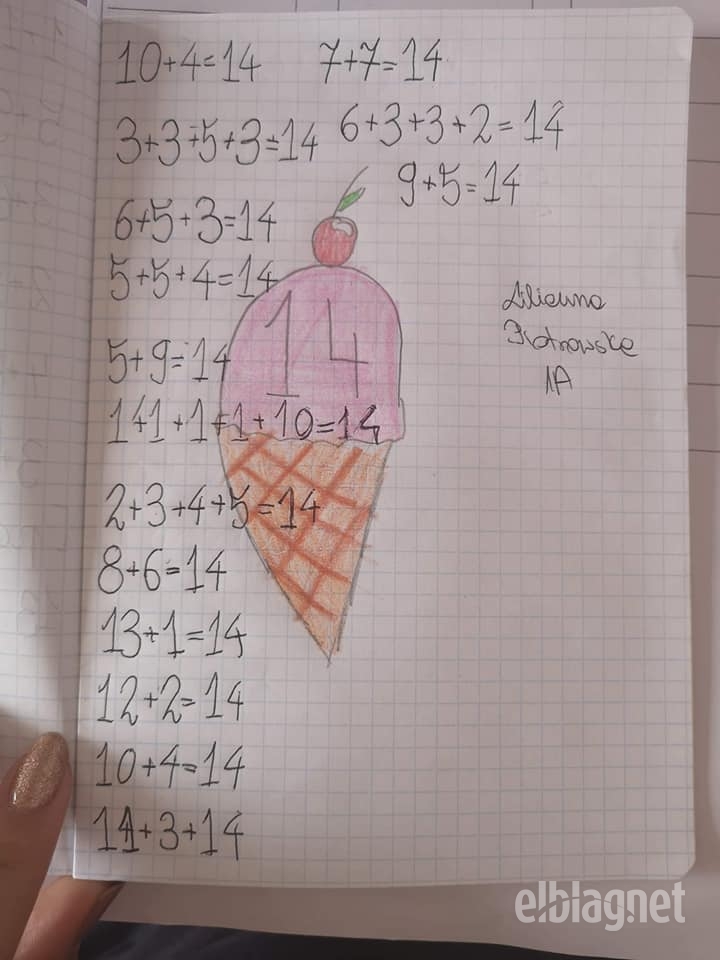 10+4=14 7+7=14
3+3+5+3=14 6+3+3+2=14
9+5=14
6+5+3=14
5+5+4=14
14
5+9=14
1+1+1+1+10=14
2+3+4+5=14
8+6=14
13+1=14
12+2=14
10+4=14
11+3+14
Lilianna
Piotrowska
1A
elblag.net